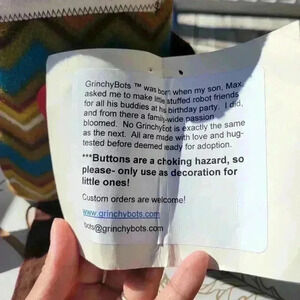 GrinchyBots ™ was born when my son, Max,
asked me to make little stuffed robot friends
for all his buddies at his birthday party. I did,
and from there a family-wide passion
bloomed. No GrinchyBot is exactly the same
as the next. All are made with love and hug-
tested before deemed ready for adoption.
***Buttons are a choking hazard, so
please- only use as decoration for
little ones!
Custom orders are welcome!
www.grinchybots.com
bots@grinchybots.com